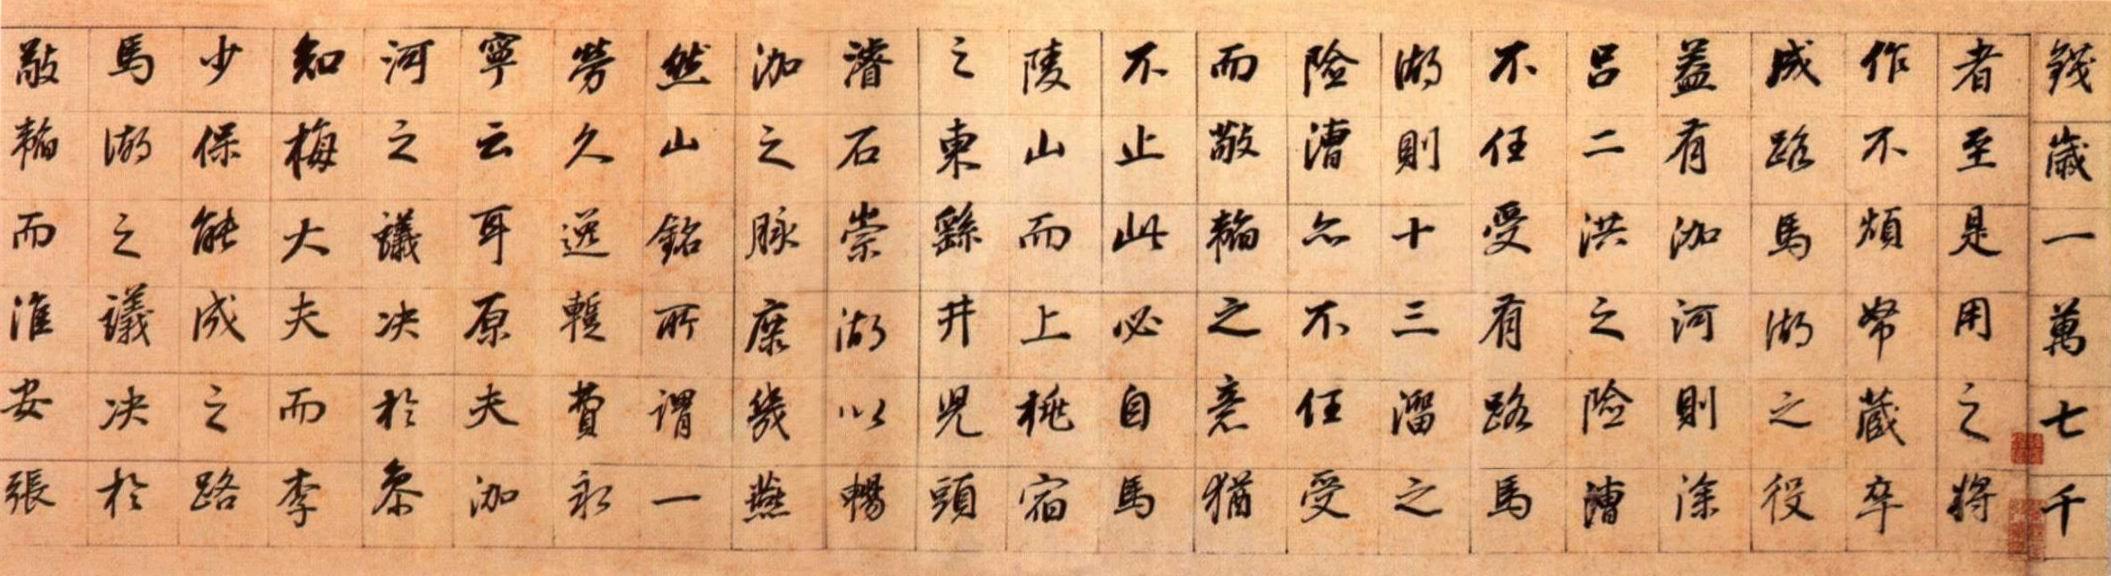 錢歲一萬七千
者至是用之將
作不煩帑藏卒
成路馬湖之役
盖有泇河則徐
吕二洪之險漕
不任受有路馬
湖則十三溜之
險漕亦不任受
而敬輪之意猶
不止此必自馬
陵山而上桃宿
之東繇井兒頭
濬石崇湖以暢
泇之脉庶幾燕
然山銘所謂一
勞久逸暫費永
寧云耳原夫泇
河之議决於參
知梅大夫而李
少保能成之路
馬湖之議决於
敬輪而淮安張